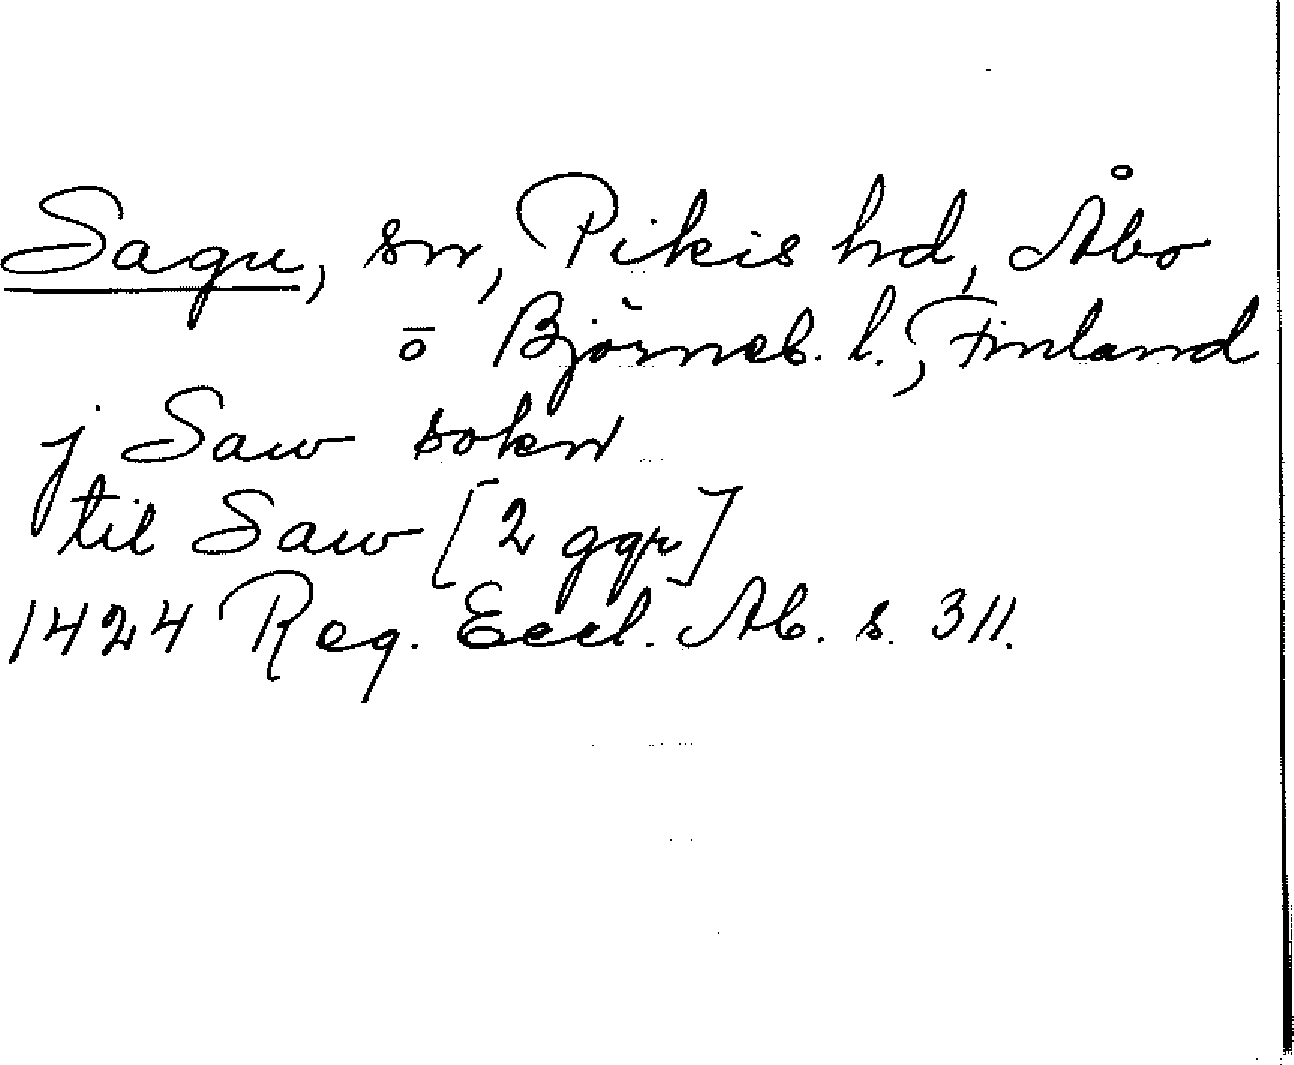 Sagu, sn, Pikis hd, Åbo
o Björneb. l., Finland
j Saw sokn
til Saw [2 ggr]
1424 Reg. Eccl. Ab. s. 311.